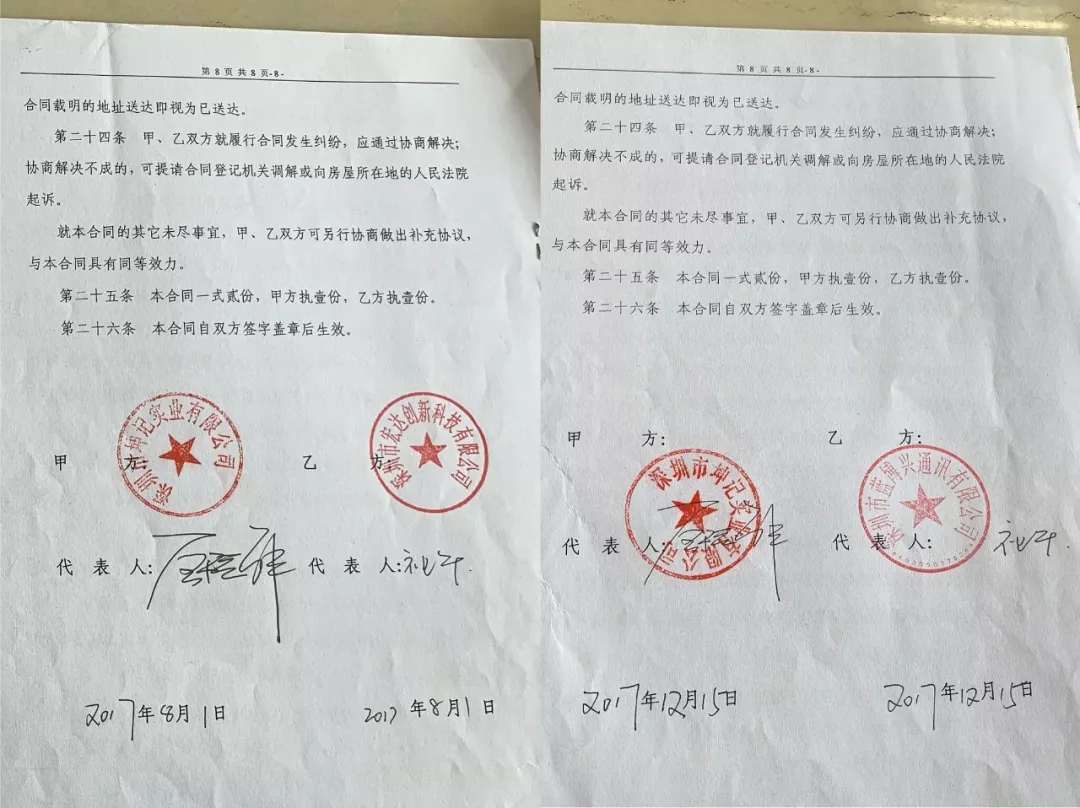 第 8 页 共 8 页-8-
合同载明的地址送达即视为已送达。
第二十四条 甲、乙双方就履行合同发生纠纷，应通过协商解决；
协商解决不成的，可提请合同登记机关调解或向房屋所在地的人民法院
起诉。
就本合同的其它未尽事宜，甲、乙双方可另行协商做出补充协议，
与本合同具有同等效力。
第二十五条 本合同一式贰份，甲方执壹份，乙方执壹份。
第二十六条 本合同自双方签字盖章后生效。
深圳市坤记实业有限公司
深圳市宏达创新科技有限公司
甲 方： 乙 方：
代 表 人： 代 表 人：
2017年8月1日 2017年8月1日
第 8 页 共 8 页-8-
合同载明的地址送达即视为已送达。
第二十四条 甲、乙双方就履行合同发生纠纷，应通过协商解决；
协商解决不成的，可提请合同登记机关调解或向房屋所在地的人民法院
起诉。
就本合同的其它未尽事宜，甲、乙双方可另行协商做出补充协议，
与本合同具有同等效力。
第二十五条 本合同一式贰份，甲方执壹份，乙方执壹份。
第二十六条 本合同自双方签字盖章后生效。
甲 方： 乙 方：
深圳市坤记实业有限公司
深圳市蓝博兴通讯有限公司
代 表 人： 代 表 人：
2017年12月15日 2017年12月15日